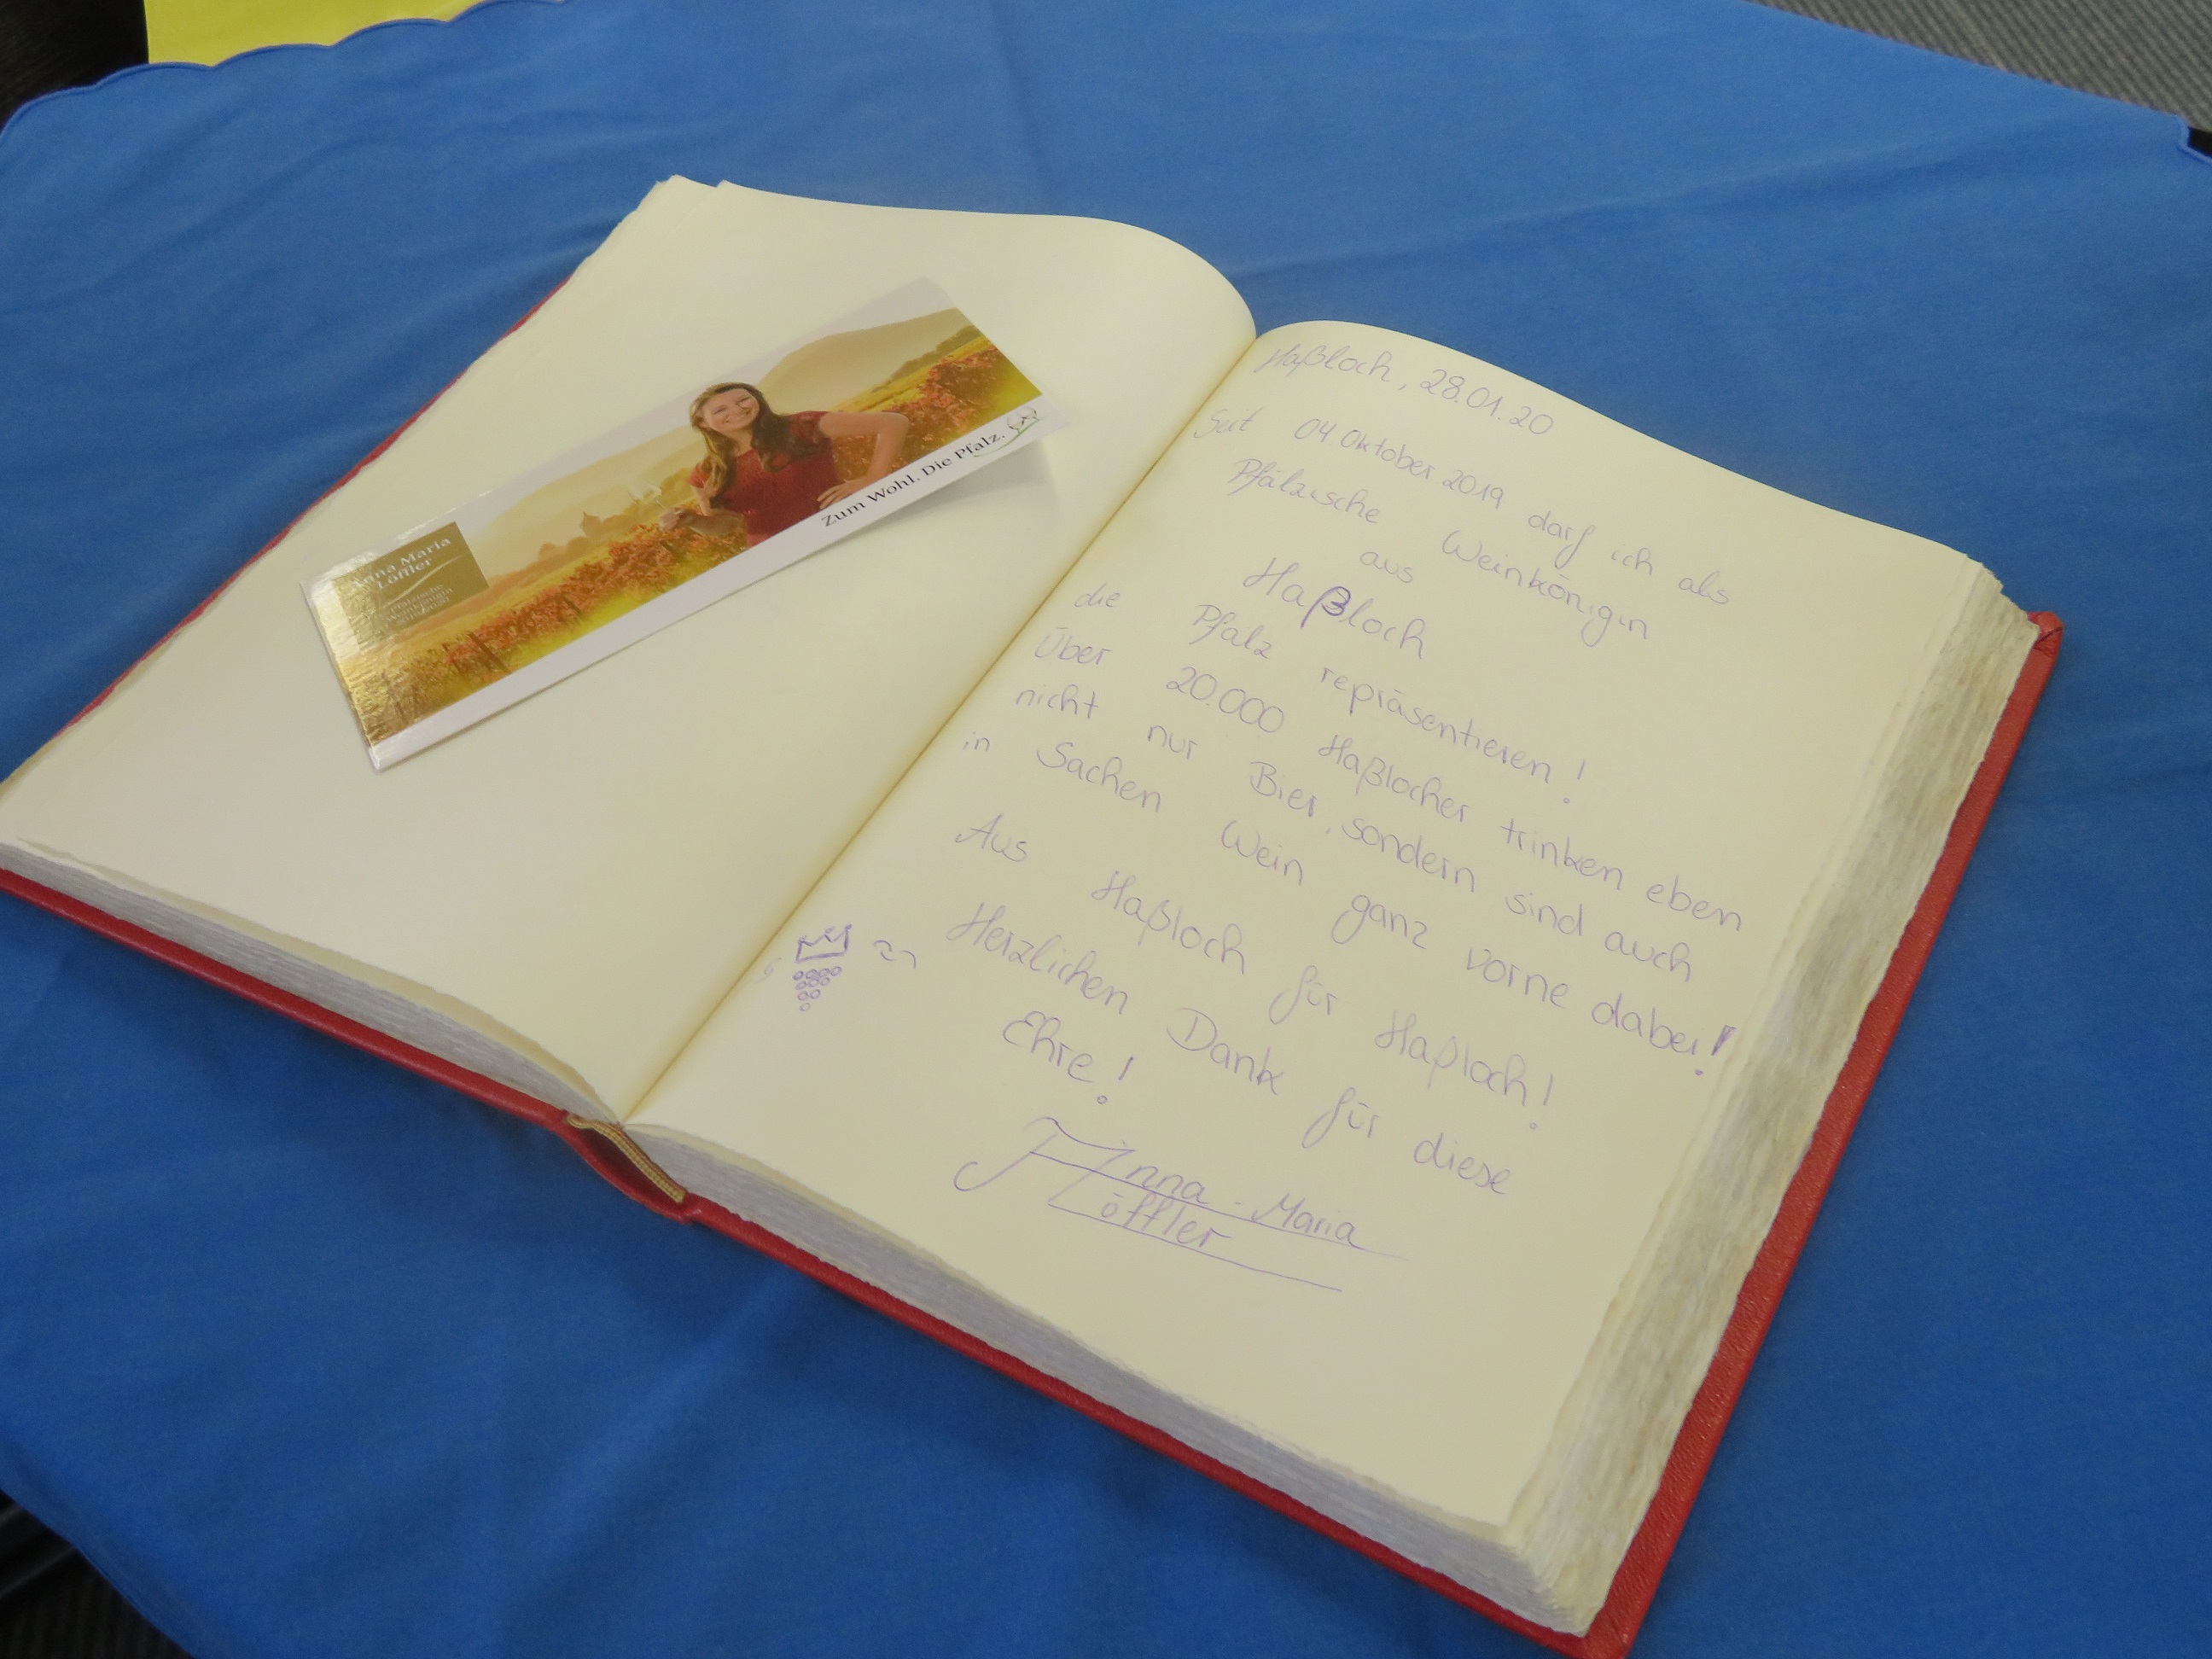 Anna Maria
Löffler
Pfälzische
Weinkönigin
2019/2020
Zum Wohl. Die Pfalz.
Haßloch, 28.01.20
Seit 04. Oktober 2019 darf ich als
Pfälzische Weinkönigin
aus
Haßloch
die Pfalz repräsentieren!
Über 20.000 Haßlocher trinken eben
nicht nur Bier, sondern sind auch
in Sachen Wein ganz vorne dabei!
Aus Haßloch für Haßloch!
Herzlichen Dank für diese
Ehre!
Anna-Maria
Löffler